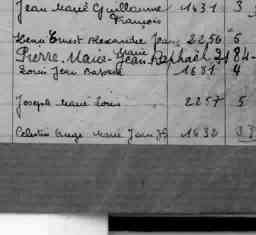 Jean Marie Guillaume 1631 3
François
Henri Ernest Alexandre Jean 2256 5
Marie
Pierre-Marie-Jean Raphaël 2184
Louis Jean Baptiste 1631 4
Joseph Marie Louis 2257 5
Célestin Ange Marie Jean 1632